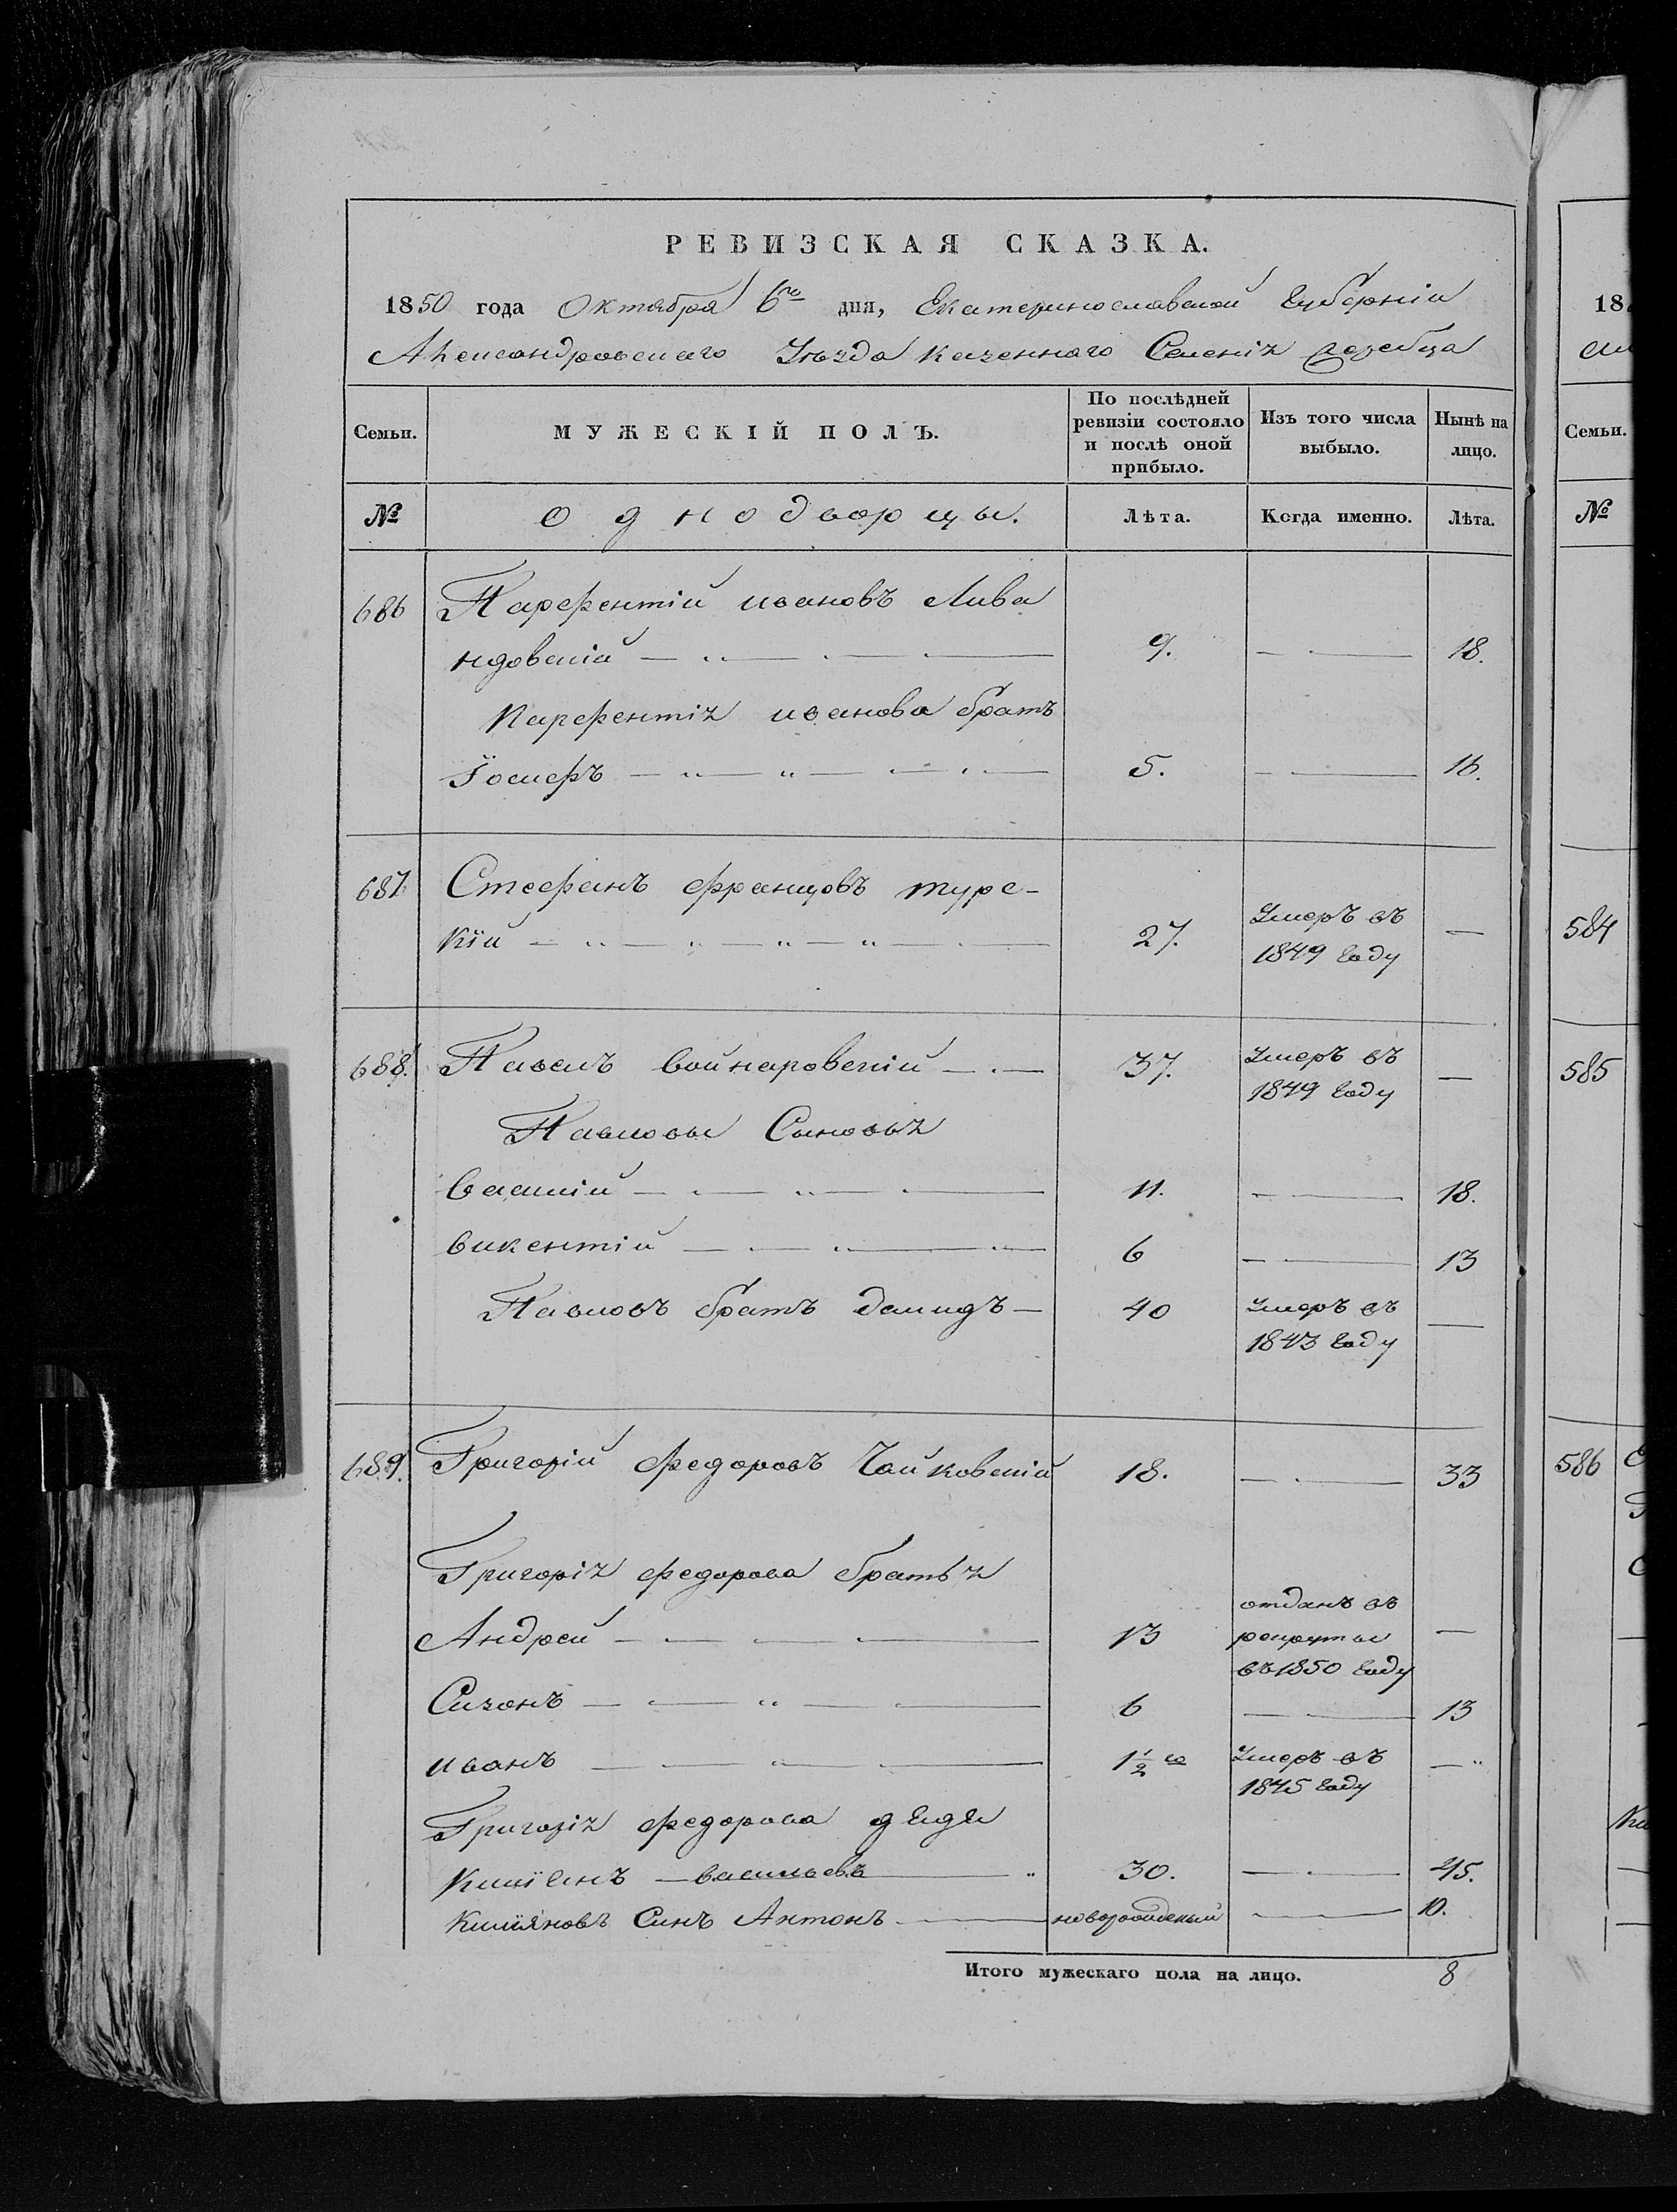 РЕВИЗСКАЯ СКАЗКА.
1850 года Октября 6го дня, Екатеринославской Губерніи
Александровскаго Уѣзда казеннаго Селенія
Семьи. МУЖЕСКІЙ ПОЛЪ. По послѣдней ревизіи состояло и послѣ оной прибыло. Изъ того числа выбыло. Нынѣ на лицо.
№ Однодворцы. Лѣта. Когда именно. Лѣта.
686 Парфентій ивановъ Лива
ндовскій 9. 18.
Парфентія иванова братъ
Іосифъ 5. 16.
687 Стефанъ францовъ турс-
кій 27. Умеръ въ 1849 Году —
688. Павелъ войнаровскій 37. Умеръ въ 1849 Году —
Павловы Сыновья
василій 11. 18.
викентій 6 13
Павловъ братъ демидъ 40 Умеръ въ 1843 Году —
689. Григорій Федоровъ Чайковскій 18. 33
Григорія федорова братья
Андрей 13 отданъ въ рекруты въ 1850 Году —
Сизонъ 6 13
иванъ 1½ Умеръ въ 1845 Году —
Григорія федорова дядя
васильевъ 30. 45.
Синъ Антонъ новорожденый 10.
Итого мужескаго пола на лицо. 8
18
Семьи.
№
584
585
586